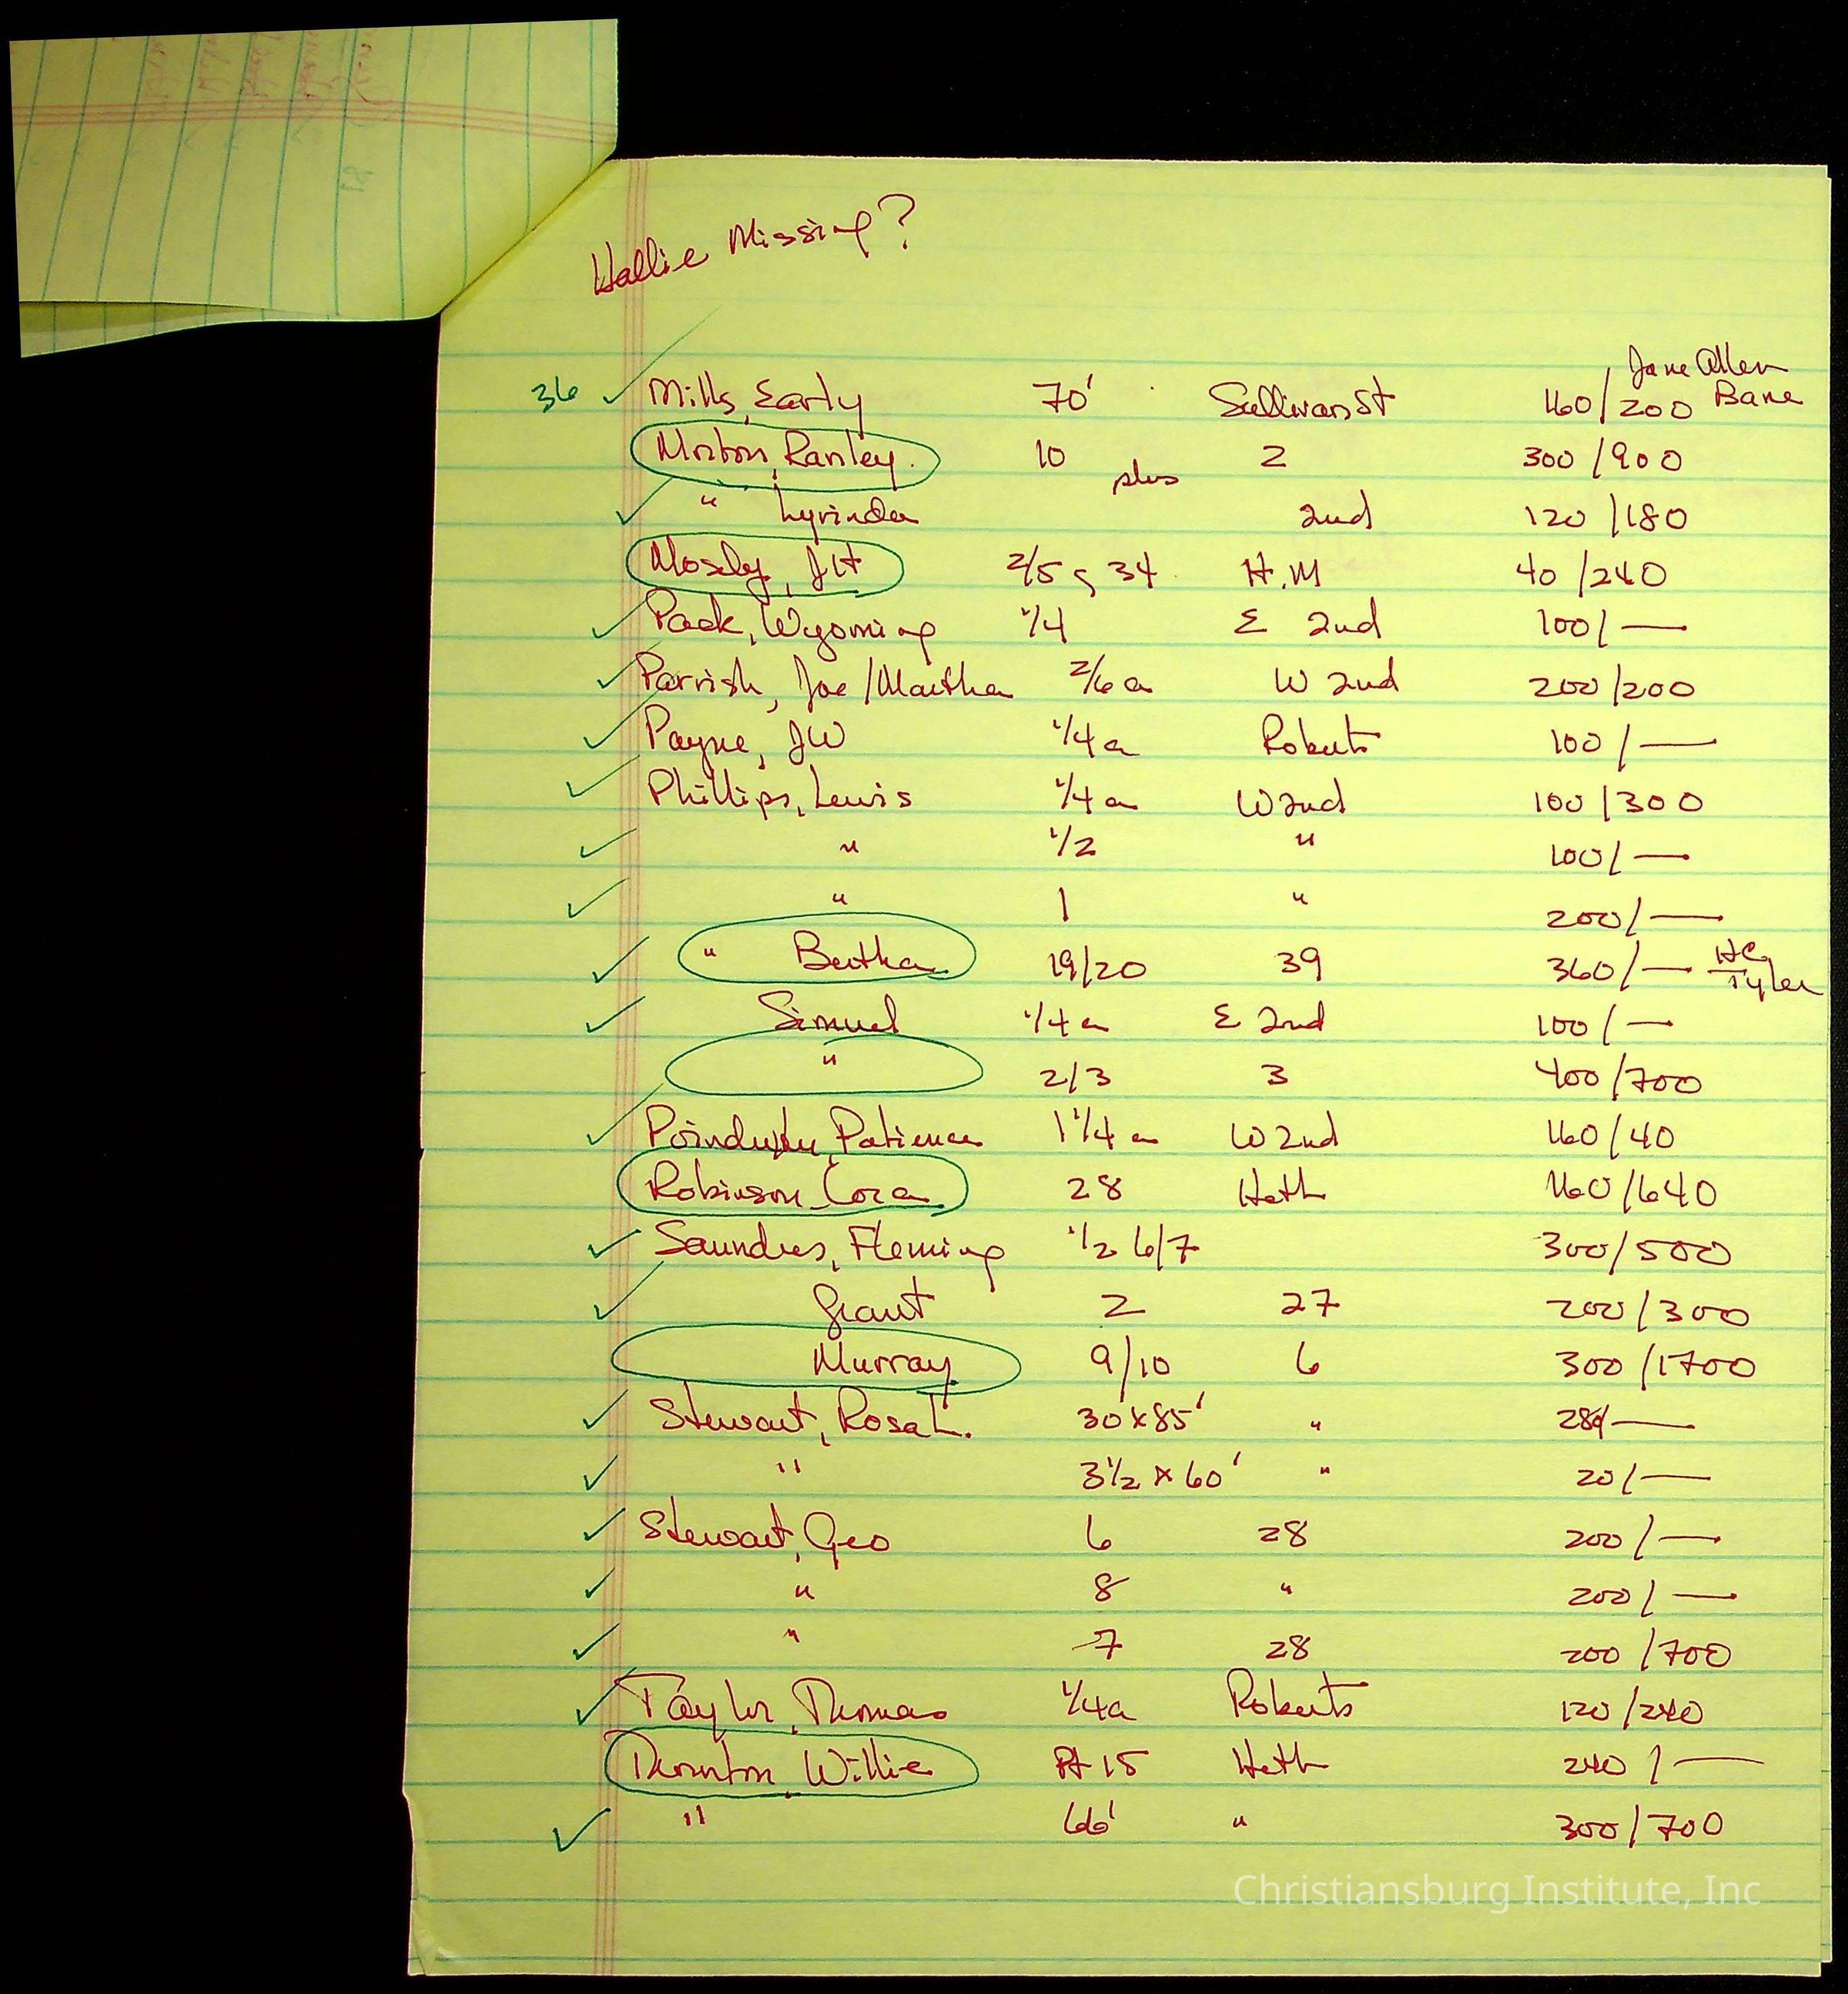 Hallie Missing?
Jane Allen
36 ✓ Mills, Early 70' Sullivan St 160/200 Bane
Morton, Ranley 10 plus 2 300/900
✓ " Lyrinda 2nd 120/180
Mosely, JH 2/5 34 H.M 40/240
✓ Pack, Wyoming 1/4 E 2nd 100/—
✓ Parrish, Joe/Martha 2/6 a W 2nd 200/200
✓ Payne, JW 1/4 a Roberts 100/—
✓ Phillips, Lewis 1/4 a W 2nd 100/300
✓ " 1/2 " 100/—
✓ " 1 " 200/—
✓ " Bertha 19/20 39 360/— HC Tyler
✓ Simuel 1/4 a E 2nd 100/—
" 2/3 3 400/700
✓ Poindexter, Patience 1 1/4 a W 2nd 160/40
Robinson, Cora 28 Heth 160/640
✓ Saundres, Fleming 1/2 6/7 300/500
✓ Grant 2 27 200/300
Murray 9/10 6 300/1700
✓ Stewart, Rosa L. 30 x 85' " 280/—
✓ " 3 1/2 x 60' " 20/—
✓ Stewart, Geo 6 28 200/—
✓ " 8 " 200/—
✓ " 7 28 200/700
✓ Taylor, Thomas 1/4 a Roberts 120/240
Thornton, Willie Pt 15 Heth 240/—
✓ " 66' " 300/700
Christiansburg Institute, Inc